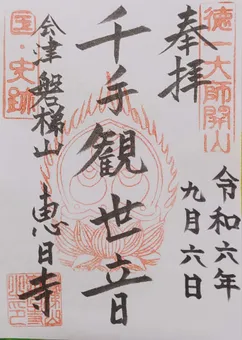 徳一大師開山
奉拝
令和六年
九月六日
千手観世音
国・史跡
会津磐梯山
恵日寺